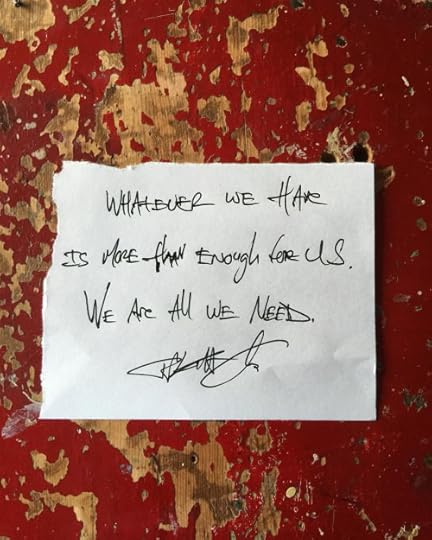 WHATEVER WE HAVE
IS MORE than ENOUGH FOR US.
WE ARE All WE NEED.